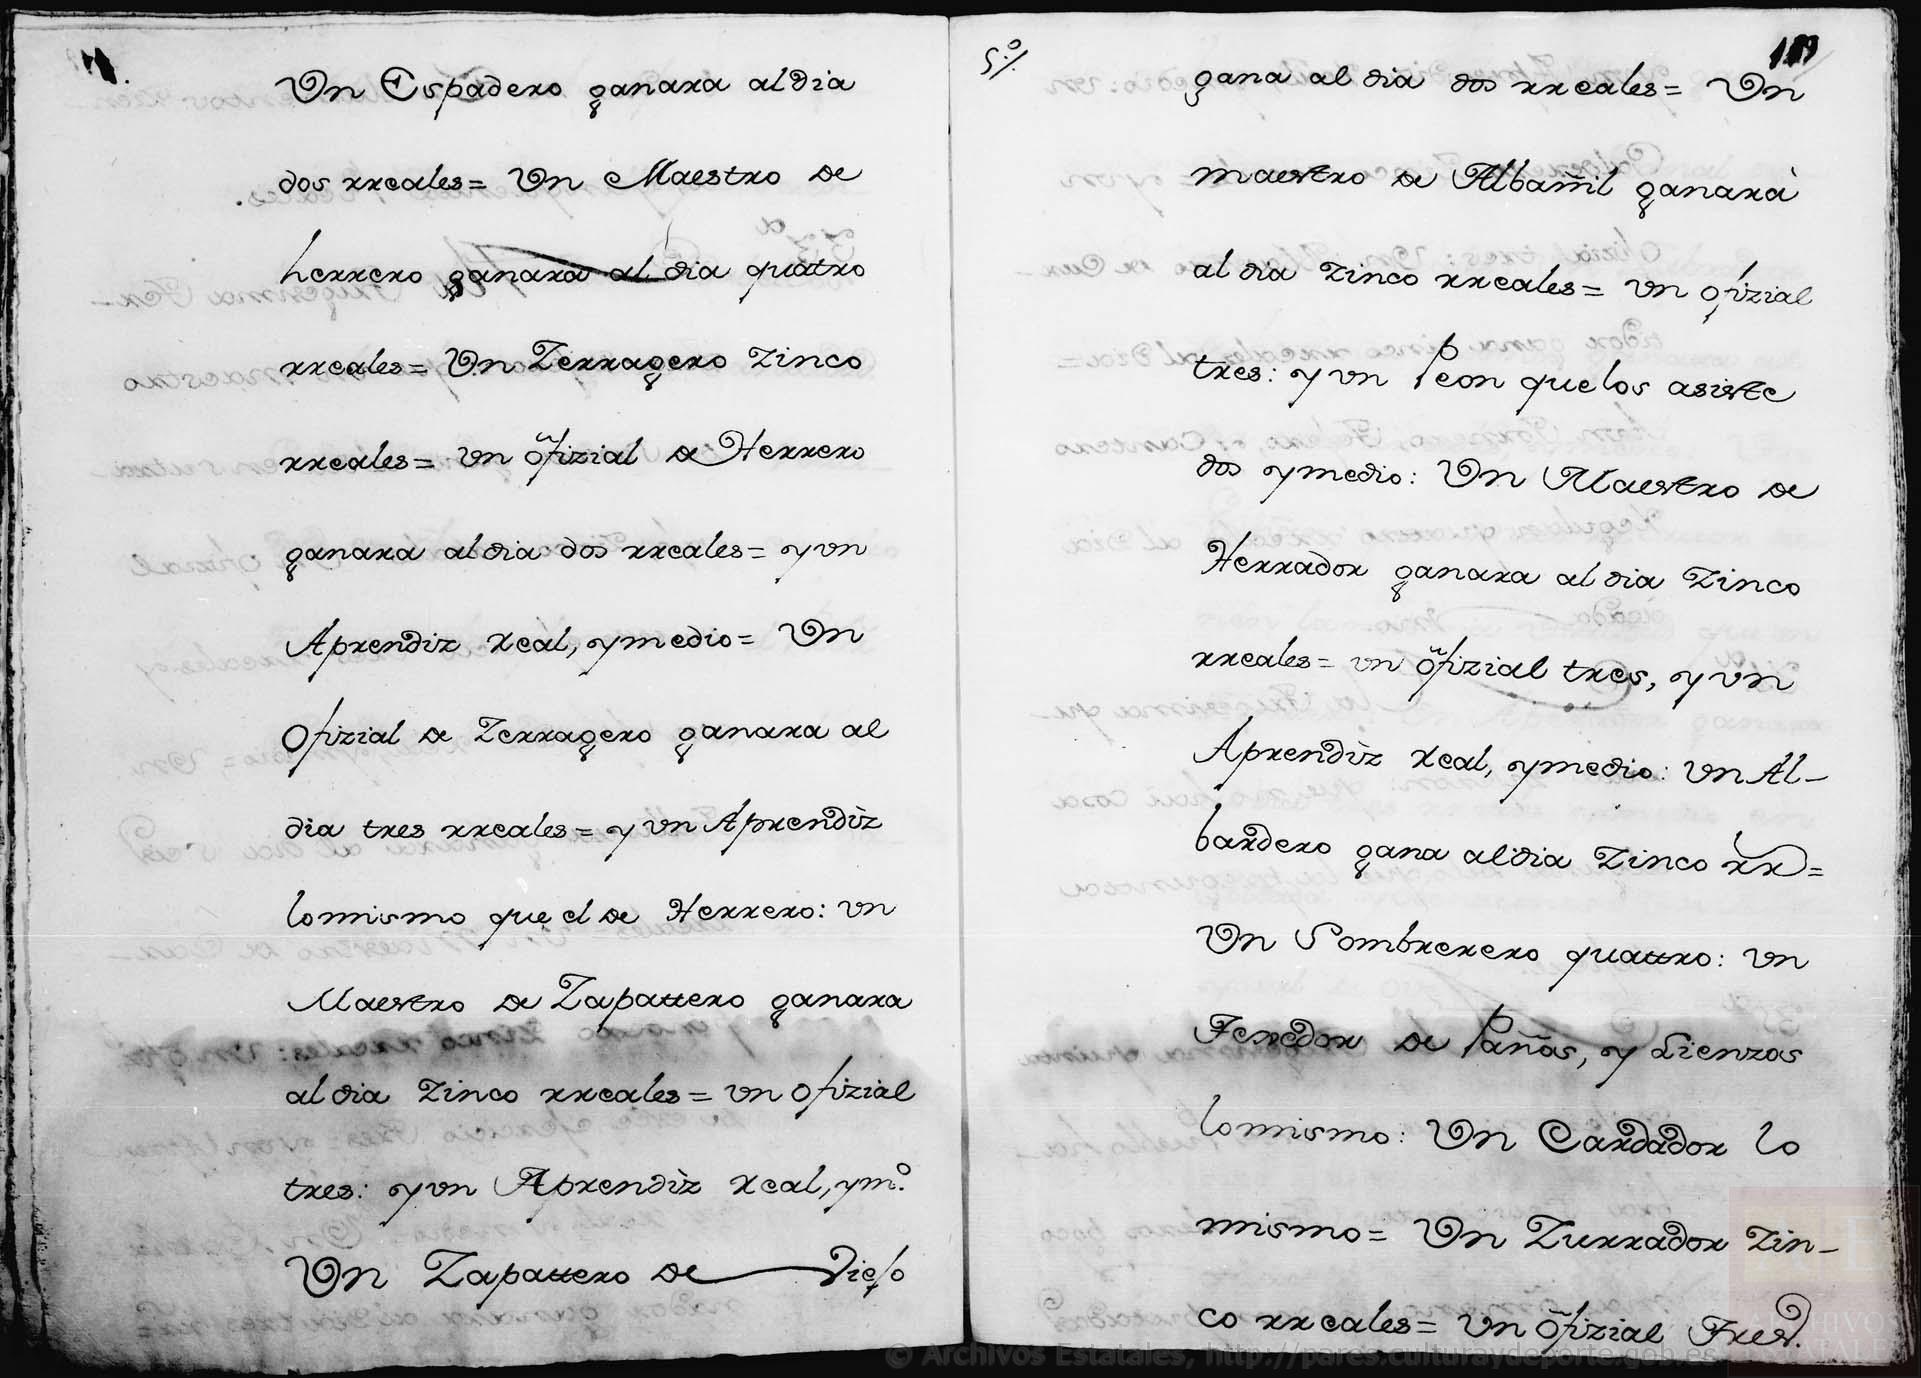 Un Espadero ganara al dia
dos rreales = Un Maestro de
herrero ganara al dia quatro
rreales = Un Zerragero zinco
rreales = Un ofizial de Herrero
ganara al dia dos rreales = y un
Aprendiz Real, y medio = Un
Ofizial de Zerragero ganara al
dia tres rreales = y un Aprendìz
lo mismo que el de Herrero: un
Maestro de Zapattero ganara
al dia zinco rreales = un ofizial
tres: y un Aprendìz Real, y m.º
Un Zapattero de Viejo
gana al dia dos rreales = Un
maestro de Albañil ganarà
al dia zinco rreales = un ofizial
tres: y un Peon que los asiste
dos y medio: Un Maestro de
Herrador ganara al dia zinco
rreales = un ofizial tres, y un
Aprendìz Real, y medio: Un Al-
bardero gana al dia zinco rr =
Un Sombrerero quattro: un
Texedor de Paños, y Lienzos
lo mismo: Un Cardador lo
mismo = Un Zurrador zin-
co rreales = Un Ofizial Tres.
© Archivos Estatales, http://pares.culturaydeporte.gob.es
ARCHIVOS
ESTATALES